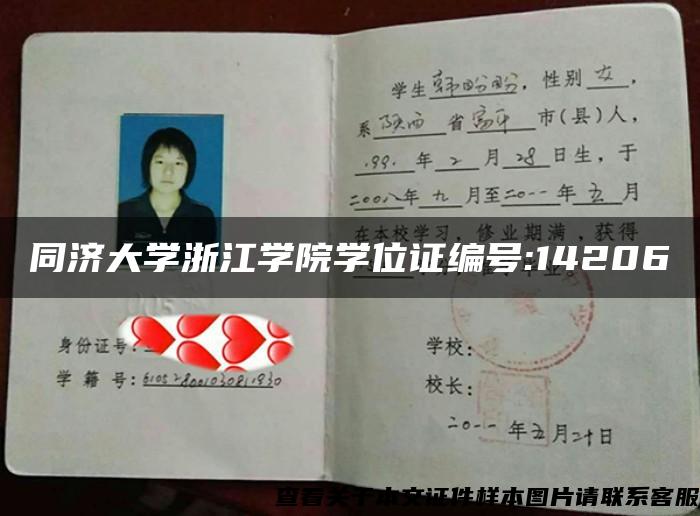 学生韩盼盼，性别女，
系陕西省富平市(县)人，
1991年2月28日生，于
二00八年九月至二0一一年五月
在本校学习，修业期满，获得
同济大学浙江学院学位证编号:14206
身份证号:
学籍号:
学校:
校长:
二0一一年五月二十日
查看关于本文证件样本图片请联系客服